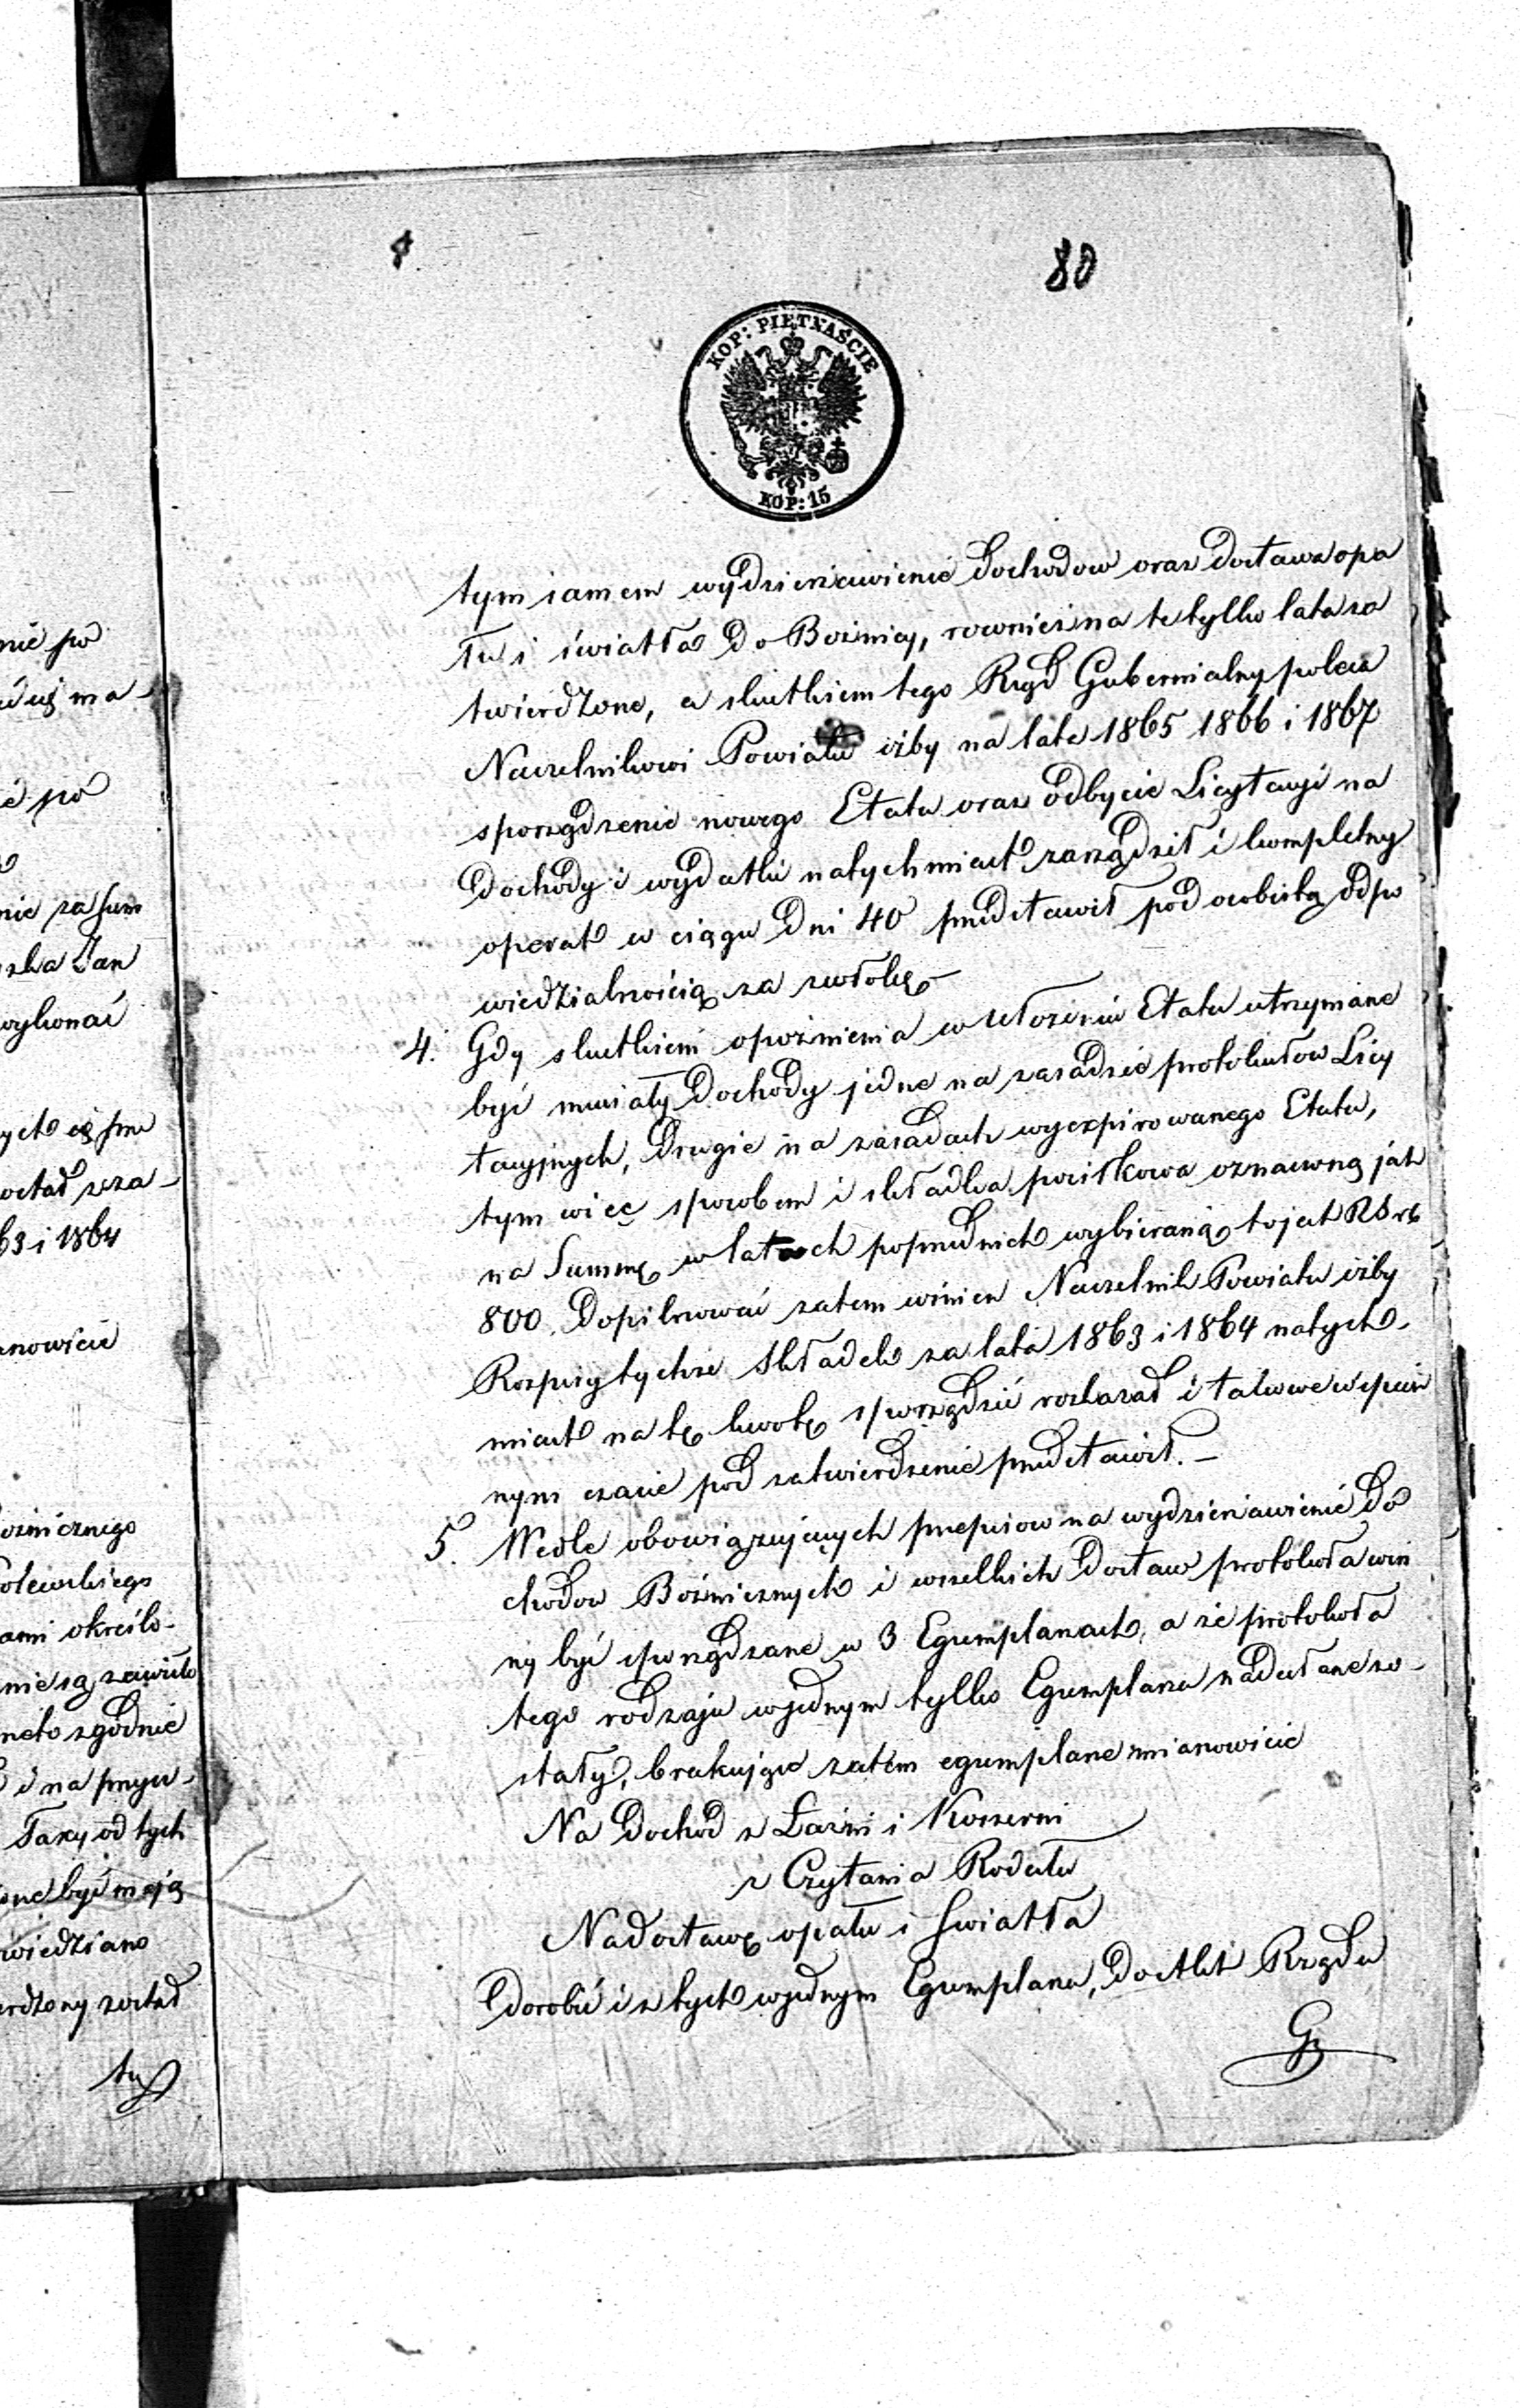 nie po
ma-
po
nie za sum
Jan
wykonać
63 i 1864
anowicie
określo-
zgodnie
i na
Taxy od tych
być mają
wiedziano
rdzony został
ty
4
80
KOP: PIĘTNAŚCIE
KOP: 15
tym samem wydzierżawienie dochodow oraz dostawa opa
łu i światła do Bożnicy, rownież na te tylko lata za
twierdzone, a skutkiem tego Rząd Gubernialny poleca
Naczelnikowi Powiatu iżby na lata 1865 1866 i 1867
sporządzenie nowego Etatu oraz odbycie Licytacyi na
dochody i wydatki natychmiast zarządził i kompletny
operat w ciągu dni 40 przedstawił pod osobistą odpo
wiedzialnością za zwłokę-
4. Gdy skutkiem opoźnienia w ułożeniu Etatu utrzymane
być musiały dochody jedne na zasadzie protokułow Licy
tacyjnych, drugie na zasadach wyexpirowanego Etatu,
tym więc sposobem i składka posiłkowa oznaczoną jest
na Summę w latach poprzednich wybieraną to jest RSrb
800. Dopilnować zatem winien Naczelnik Powiatu iżby
Rozpisy tychże składek za lata 1863 i 1864 natych-
miast na tę kwotę sporządzić rozkazał i takowe w
nym czasie pod zatwierdzenie przedstawił.-
5. Wedle obowiązujących przepisow na wydzierżawienie do
chodow Bożnicznych i wszelkich dostaw protokoła win
ny być sporządzane w 3 Egzemplarzach, a że protokoła
tego rodzaju w jednym tylko Egzemplarzu nadesłane zo-
stały, brakujące zatem egzemplarze mianowicie
Na dochod z Łaźni i Koszerni
z Czytania Rodału
Na dostawę opału i Swiatła
Dorobić i z tych w jednym Egzemplarzu, do Akt Rządu
G